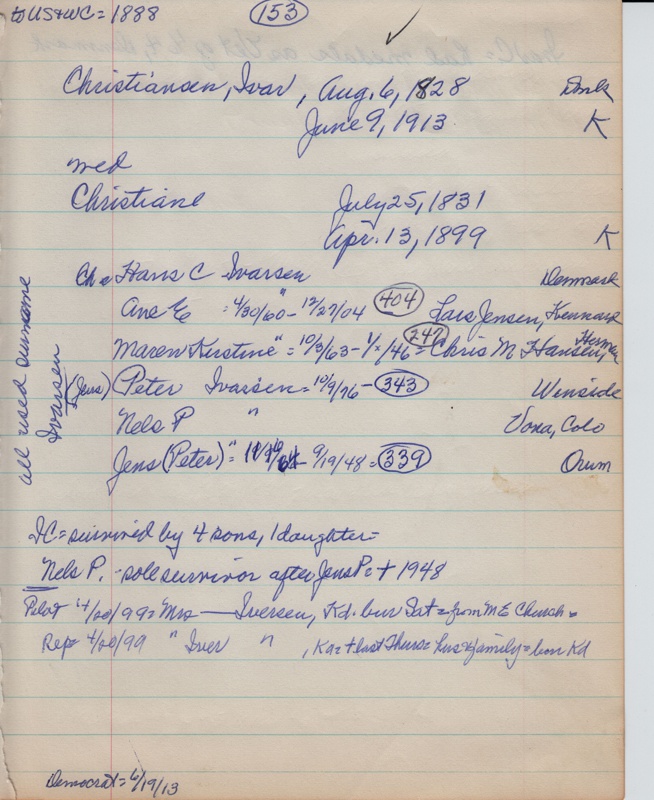 to US & WC = 1888
153
Christiansen, Ivar, Aug. 6, 1828 Dmk
June 9, 1913 K
med
Christiane July 25, 1831
Apr. 13, 1899 K
Ch = Hans C Ivarsen Denmark
Ane E " = 4/30/60 - 12/27/04 404 Lars Jensen, Kennard
Maren Kirstine " = 10/3/63 - 1/ /46 = 247 Chris M Hansen, Herman
(Jens) Peter Ivarsen = 10/9/76 - 343 Winside
Nels P " Vona, Colo
Jens (Peter) " = 9/19/48 = 339 Orum
all used surname
Ivarsen
IC = survived by 4 sons, 1 daughter =
Nels P. - sole survivor after Jens P = + 1948
Pilot 4/20/99 = Mrs — Iversen, Kd. bur Sat = from M E Church =
Rep 4/20/99 " Iver " , Ka = + last Thurs = hus & family = bur Kd
Democrat = 6/19/13